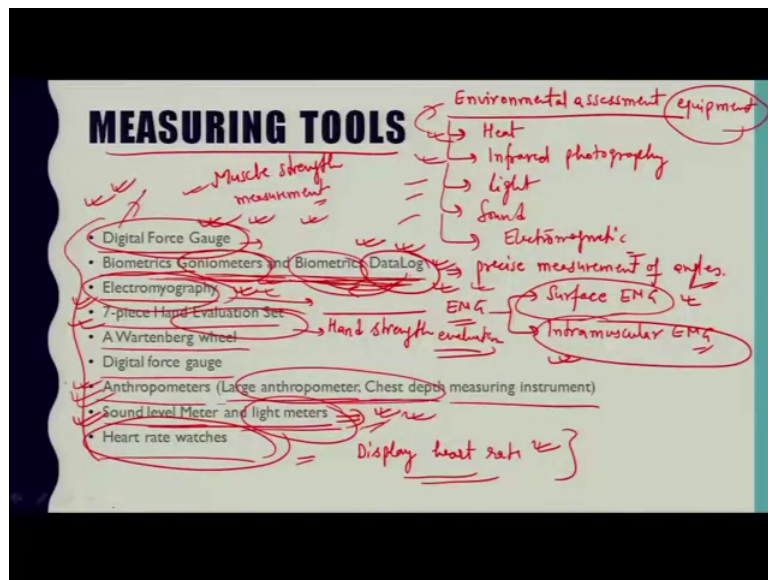 Environmental assessment equipment
MEASURING TOOLS
→ Heat
→ Infrared photography
→ Light
→ Sound
→ Electromagnetic
Muscle strength
measurement
• Digital Force Gauge →
• Biometrics Goniometers and Biometrics DataLog → precise measurement of angles.
• Electromyography → EMG → Surface EMG
→ Intramuscular EMG
• 7-piece Hand Evaluation Set → Hand strength evaluation
• A Wartenberg wheel
• Digital force gauge
• Anthropometers (Large anthropometer, Chest depth measuring instrument)
• Sound level Meter and light meters
• Heart rate watches = Display heart rate